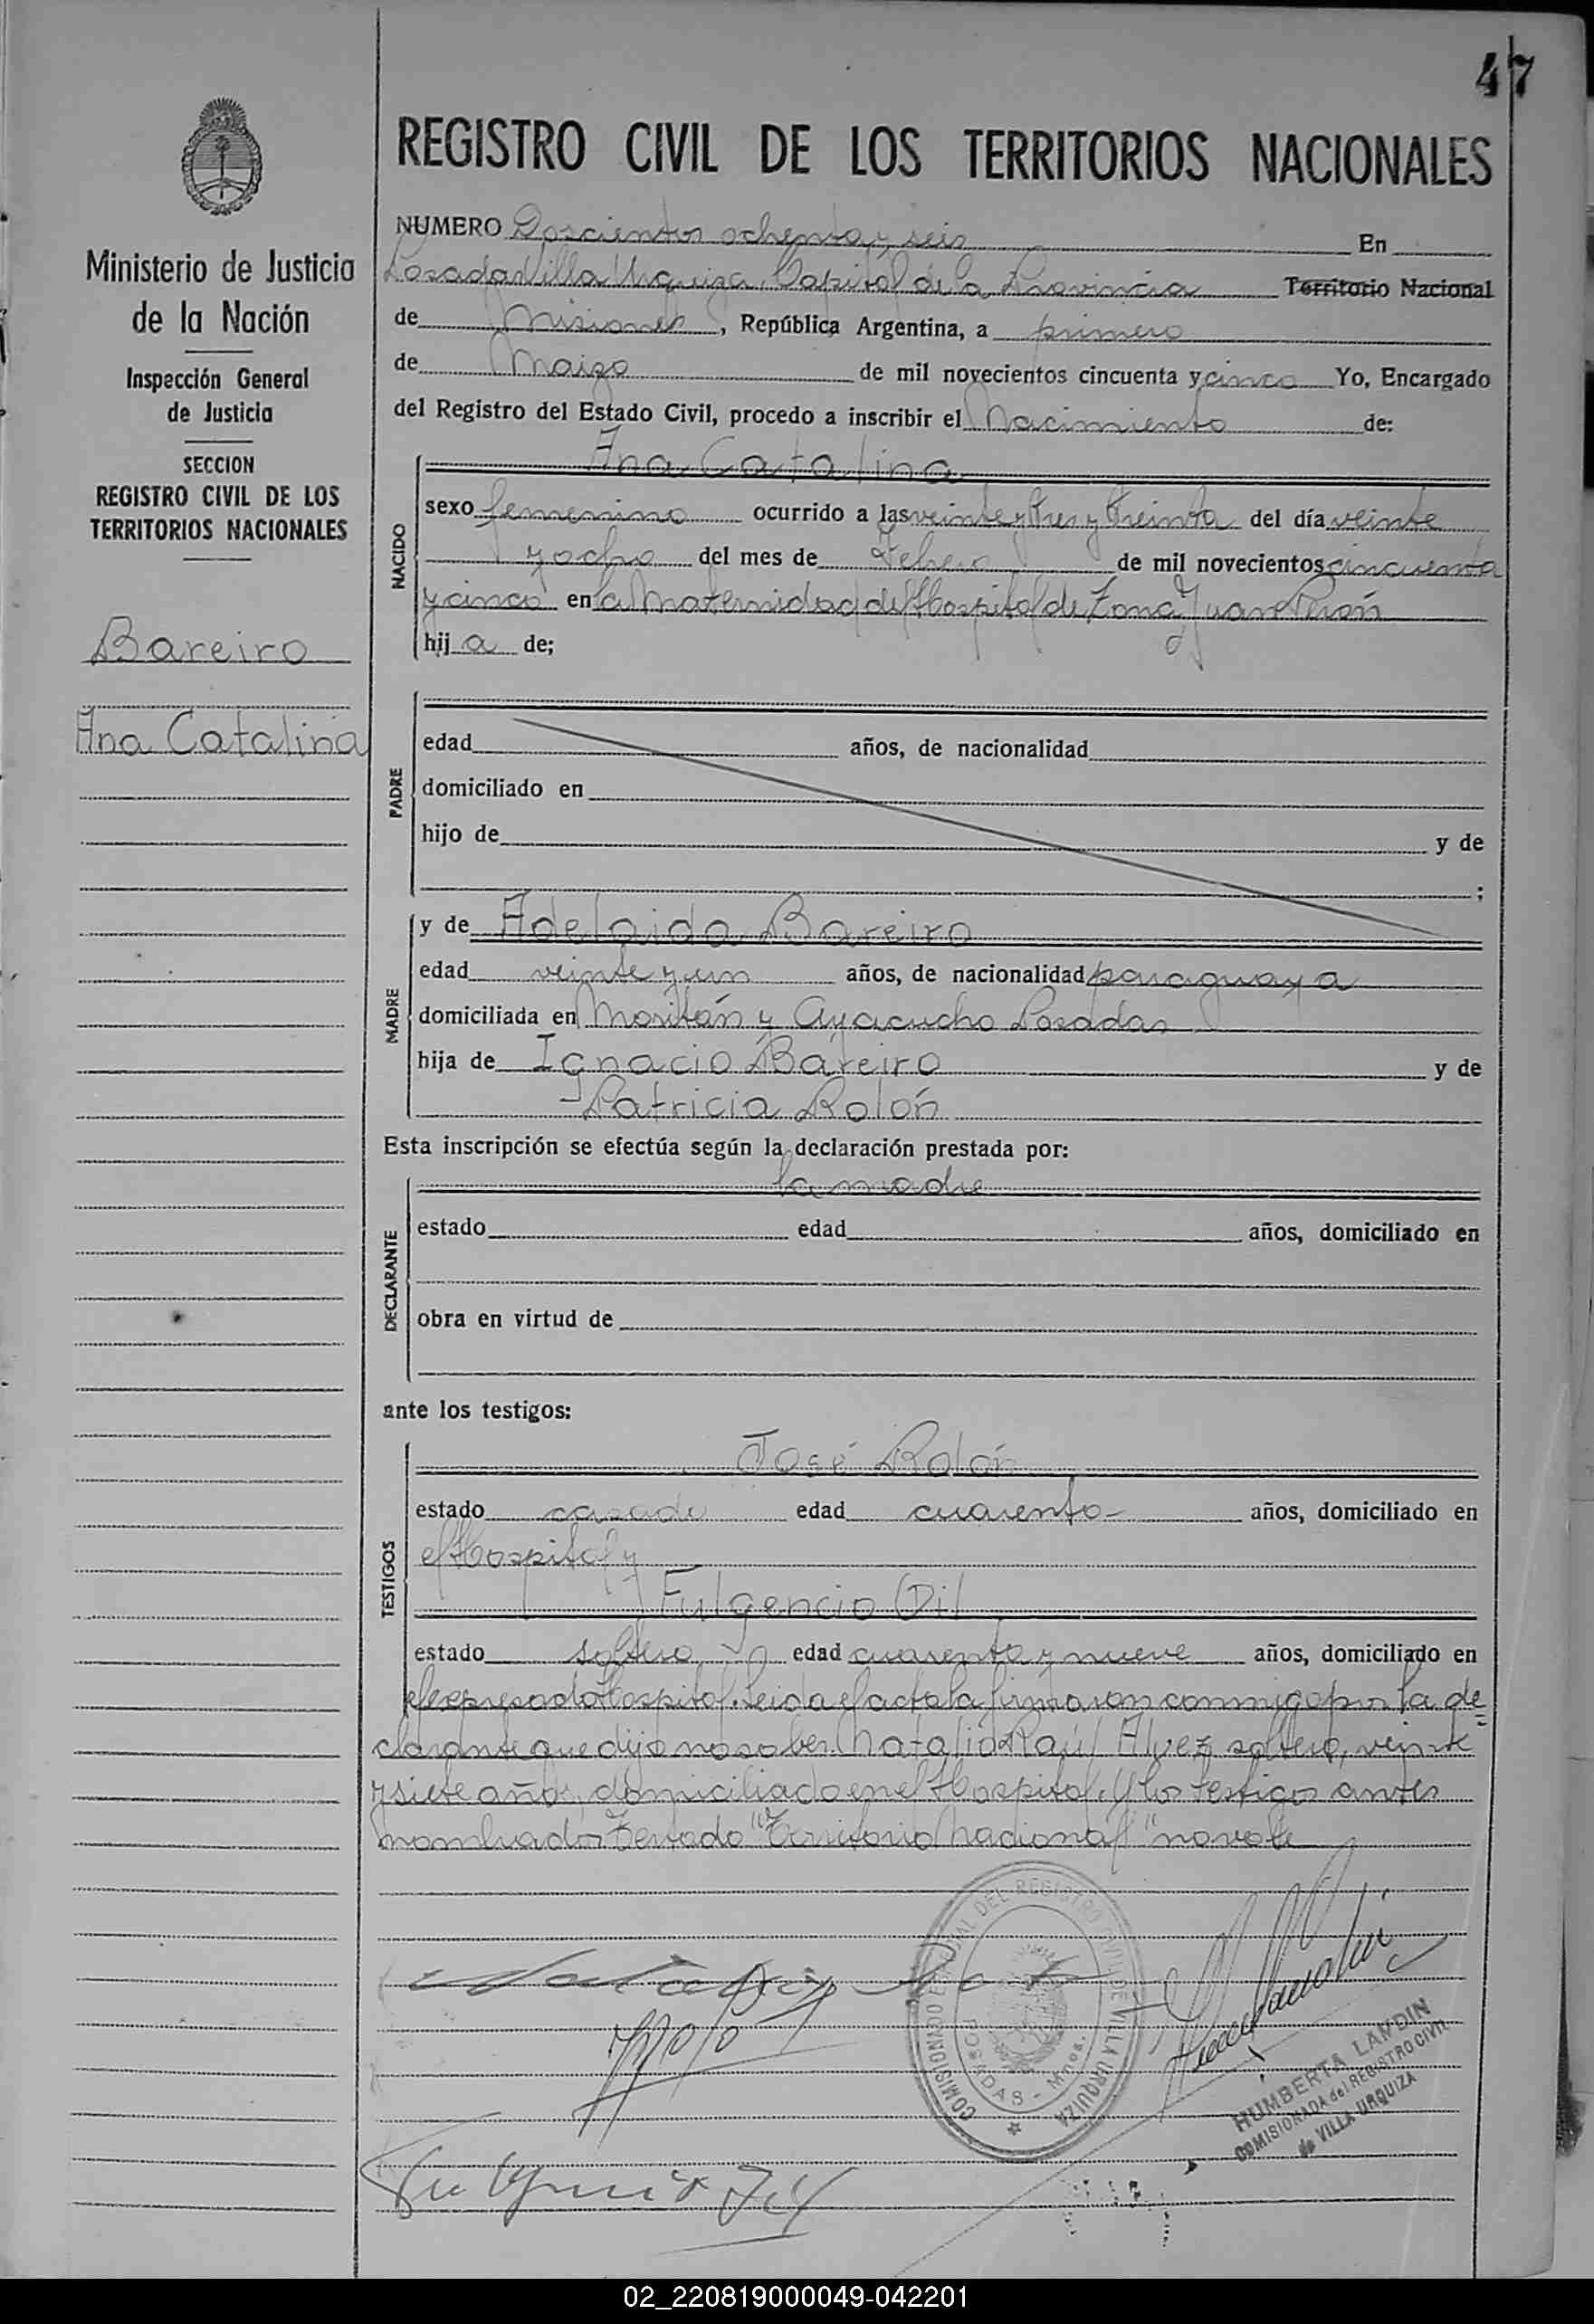 47
REGISTRO CIVIL DE LOS TERRITORIOS NACIONALES
Ministerio de Justicia
de la Nación
Inspección General
de Justicia
SECCION
REGISTRO CIVIL DE LOS
TERRITORIOS NACIONALES
Bareiro
Ana Catalina
NUMERO Doscientos ochenta y seis En
Posadas Villa Urquiza, Capital de la Provincia Territorio Nacional
de Misiones, República Argentina, a primero
de Marzo de mil novecientos cincuenta y cinco Yo, Encargado
del Registro del Estado Civil, procedo a inscribir el Nacimiento de:
NACIDO
Ana Catalina
sexo femenino ocurrido a las veinte y tres y treinta del día veinte
y ocho del mes de Febrero de mil novecientos cincuenta
y cinco en la Maternidad del Hospital de Zona Juan Perón
hij a de;
PADRE
edad años, de nacionalidad
domiciliado en
hijo de y de
;
MADRE
y de Adelaida Bareiro
edad veinte y un años, de nacionalidad paraguaya
domiciliada en y Ayacucho Posadas
hija de Ignacio Bareiro y de
Patricia Rolón
Esta inscripción se efectúa según la declaración prestada por:
DECLARANTE
la madre
estado edad años, domiciliado en
obra en virtud de
ante los testigos:
TESTIGOS
José Rolón
estado casado edad cuarenta años, domiciliado en
el Hospital y
Fulgencio Dil
estado soltero edad cuarenta y nueve años, domiciliado en
el expresado Hospital. Leida el acta la firmaron conmigo por la de
clarante que dijo no saber Natalio Raúl Alvez soltero, veinte
y siete años, domiciliado en el Hospital. Y los testigos antes
nombrados Testado "Territorio Nacional" no vale
COMISIONADO DEL REGISTRO CIVIL DE VILLA URQUIZA
POSADAS - Mnes.
HUMBERTA LANDIN
COMISIONADA del REGISTRO CIVIL
de VILLA URQUIZA
02_220819000049-042201